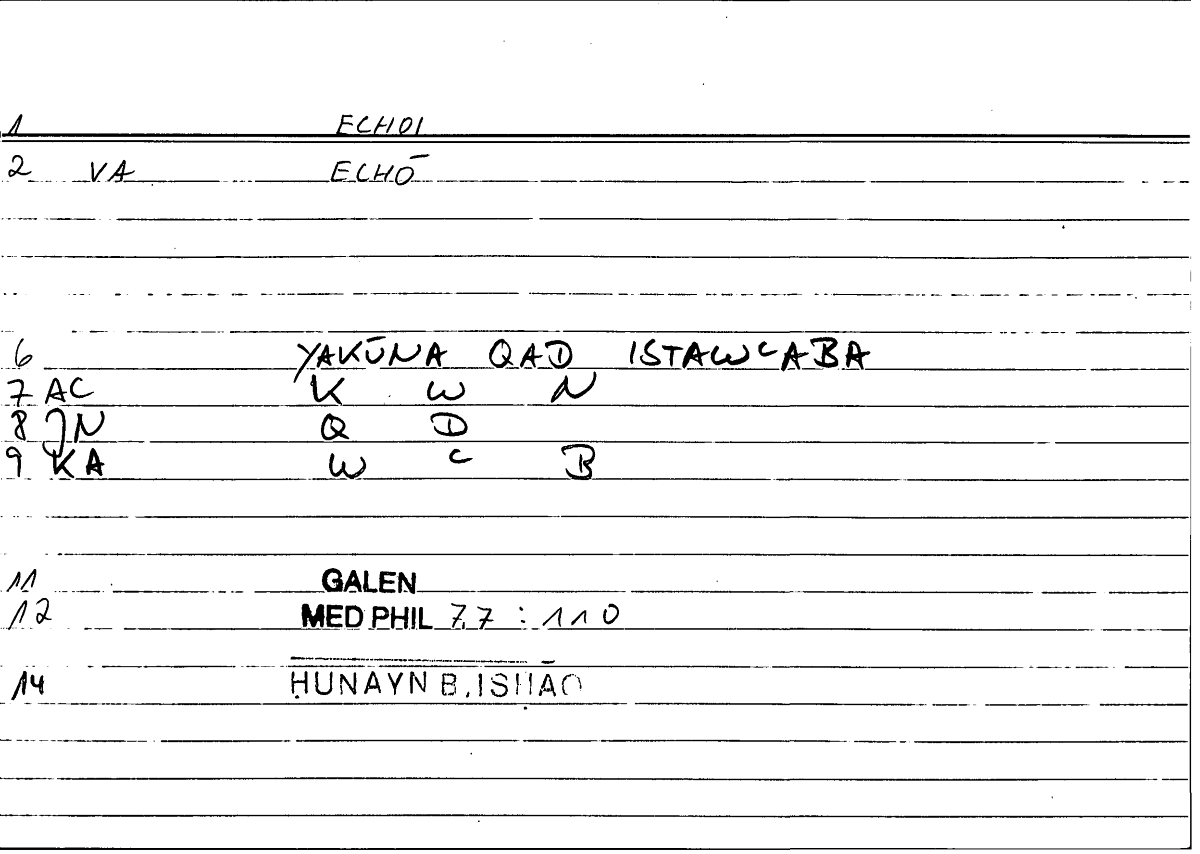 1 ECHOI
2 VA ECHŌ
6 YAKŪNA QAD ISTAWʿABA
7 AC K W N
8 JN Q D
9 KA W ʿ B
11 GALEN
12 MED PHIL 7,7 : 110
14 ḤUNAYN B. ISḤĀQ